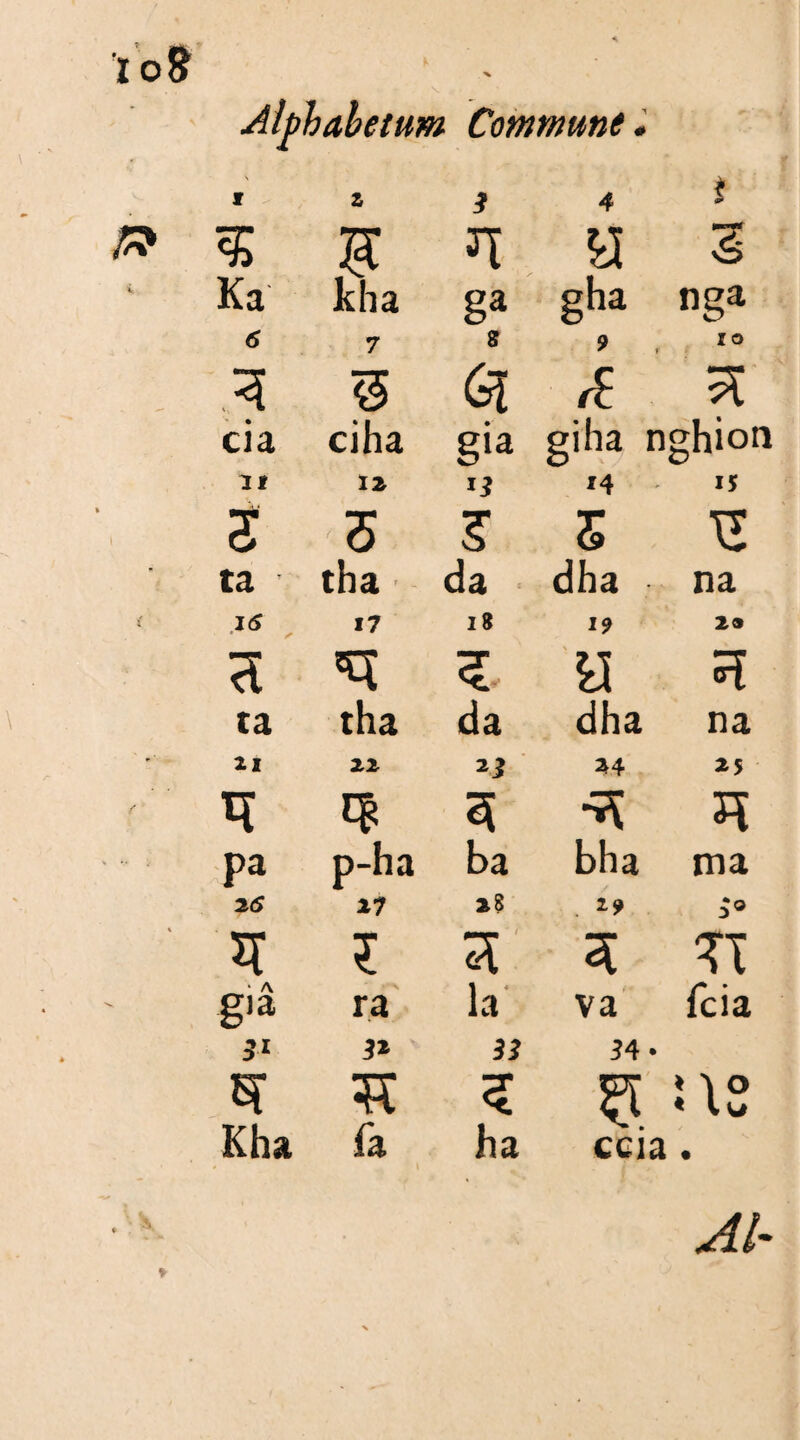 108
Alphabetum Commune.
1 2 3 4 5
क ख ग घ ङ
Ka kha ga gha nga
6 7 8 9 10
च छ ज झ ञ
cia ciha gia giha nghion
11 12 13 14 15
ट ठ ड ढ ण
ta tha da dha na
16 17 18 19 20
त थ द ध न
ta tha da dha na
21 22 23 24 25
प फ ब भ म
pa p-ha ba bha ma
26 27 28 29 30
य र ल व श
giâ ra la va ſcia
31 32 33 34.
ष स ह
Kha ſa ha ccia.
Al-